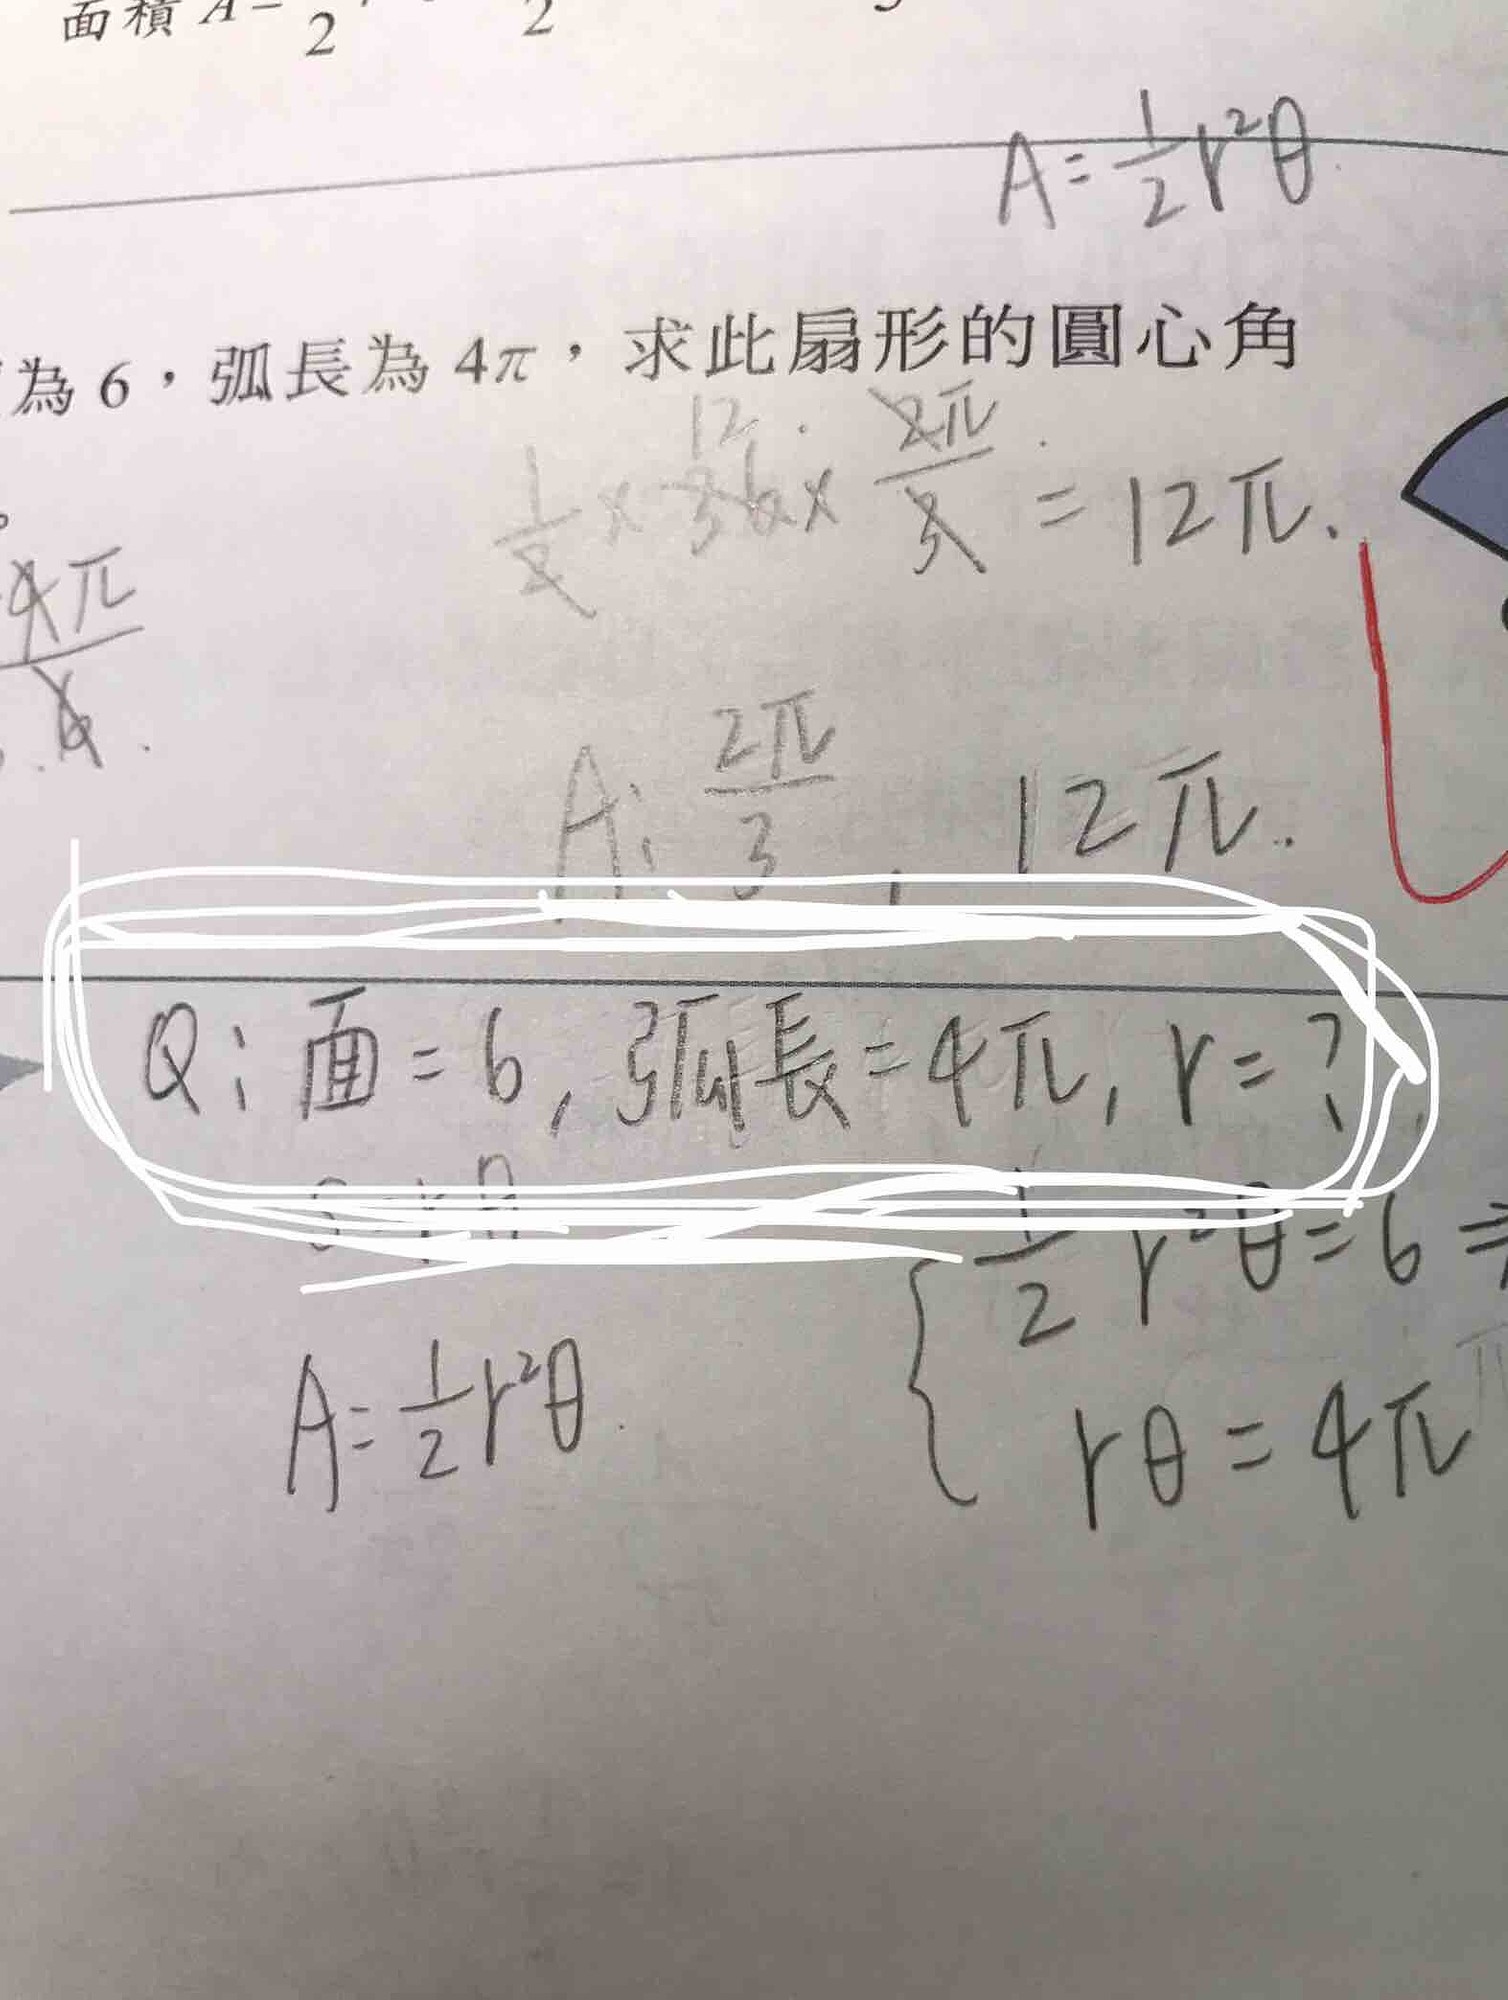 面積 A=
2
2
A=1/2 r²θ
為 6,弧長為 4π,求此扇形的圓心角
1/2 × 36 × 2π/3 = 12π.
12
4π/6
A: 2π/3, 12π.
Q: 面=6, 弧長=4π, r=?
1/2 r²θ=6 ⇒
A=1/2 r²θ.
rθ=4π